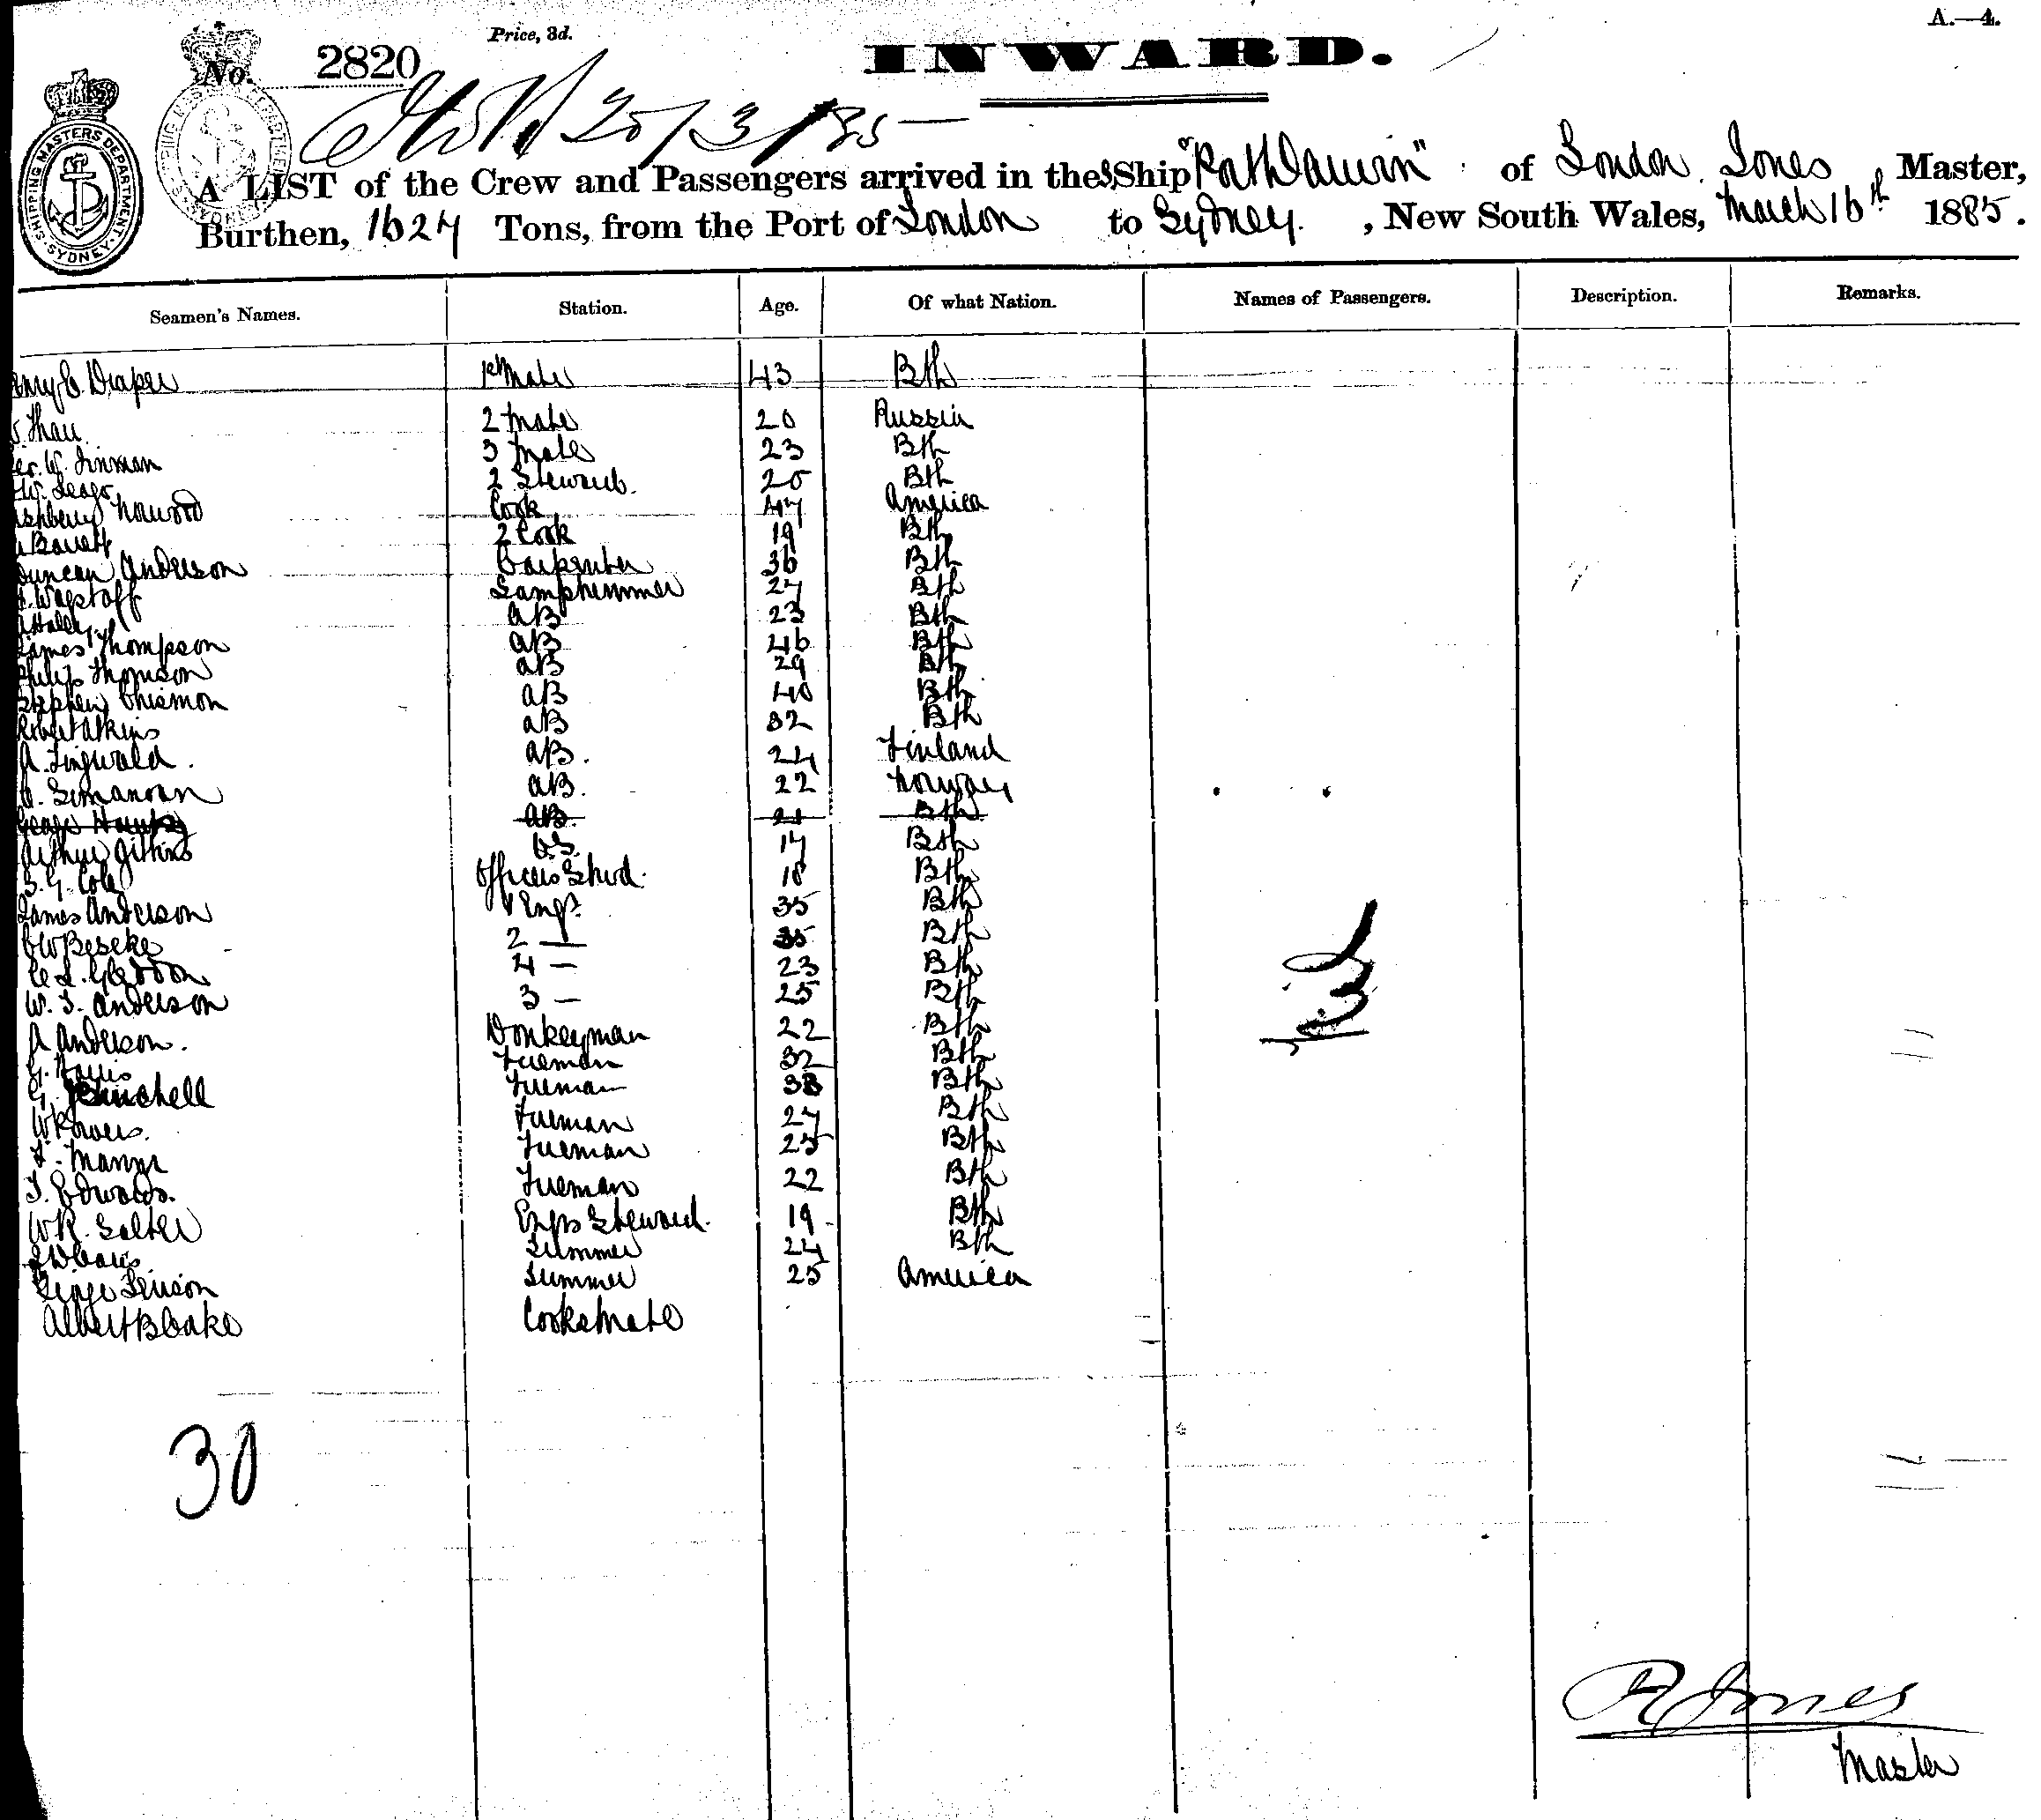 A.—4.
Price, 3d.
No. 2820
INWARD.
20/3/85
SHIPPING MASTERS DEPARTMENT SYDNEY
A LIST of the Crew and Passengers arrived in the SShip "Rathdawin" of London. Jones Master,
Burthen, 1627 Tons, from the Port of London to Sydney. , New South Wales, March 16th 1885.
Seamen's Names. Station. Age. Of what Nation. Names of Passengers. Description. Remarks.
Draper 1st Mate 43 Bth
Thau 2 Mate 20 Russia
W. Inman 3 Mate 23 Bth
2 Steward. 20 Bth
Cook 47 America
2 Cook 19 Bth
Duncan Anderson Carpenter 36 Bth
Wagstaff Lamptrimmer 27 Bth
AB 23 Bth
James Thompson AB 46 Bth
Philip Thomson AB 29 Bth
Stephen Chismon AB 40 Bth
Robert Atkins AB 32 Bth
A. Lingwald. AB. 24 Finland
AB. 22 Norway
George AB. 21 Bth
Arthur Gittins O.S. 17 Bth
Cole Officers Stwd. 18 Bth
James Anderson 1 Engr. 35 Bth
2 — 35 Bth
4 — 23 Bth
W. J. Anderson 3 — 25 Bth
A Anderson. Donkeyman 22 Bth
G. Fireman 32 Bth
G. Fireman 33 Bth
W Powers. Fireman 27 Bth
Fireman 25 Bth
J. Edwards. Fireman 22 Bth
W R. Salter Engrs Steward. 19 Bth
Trimmer 24 Bth
Trimmer 25 America
Albert Blake Cooks Mate
3
30
R Jones
Master